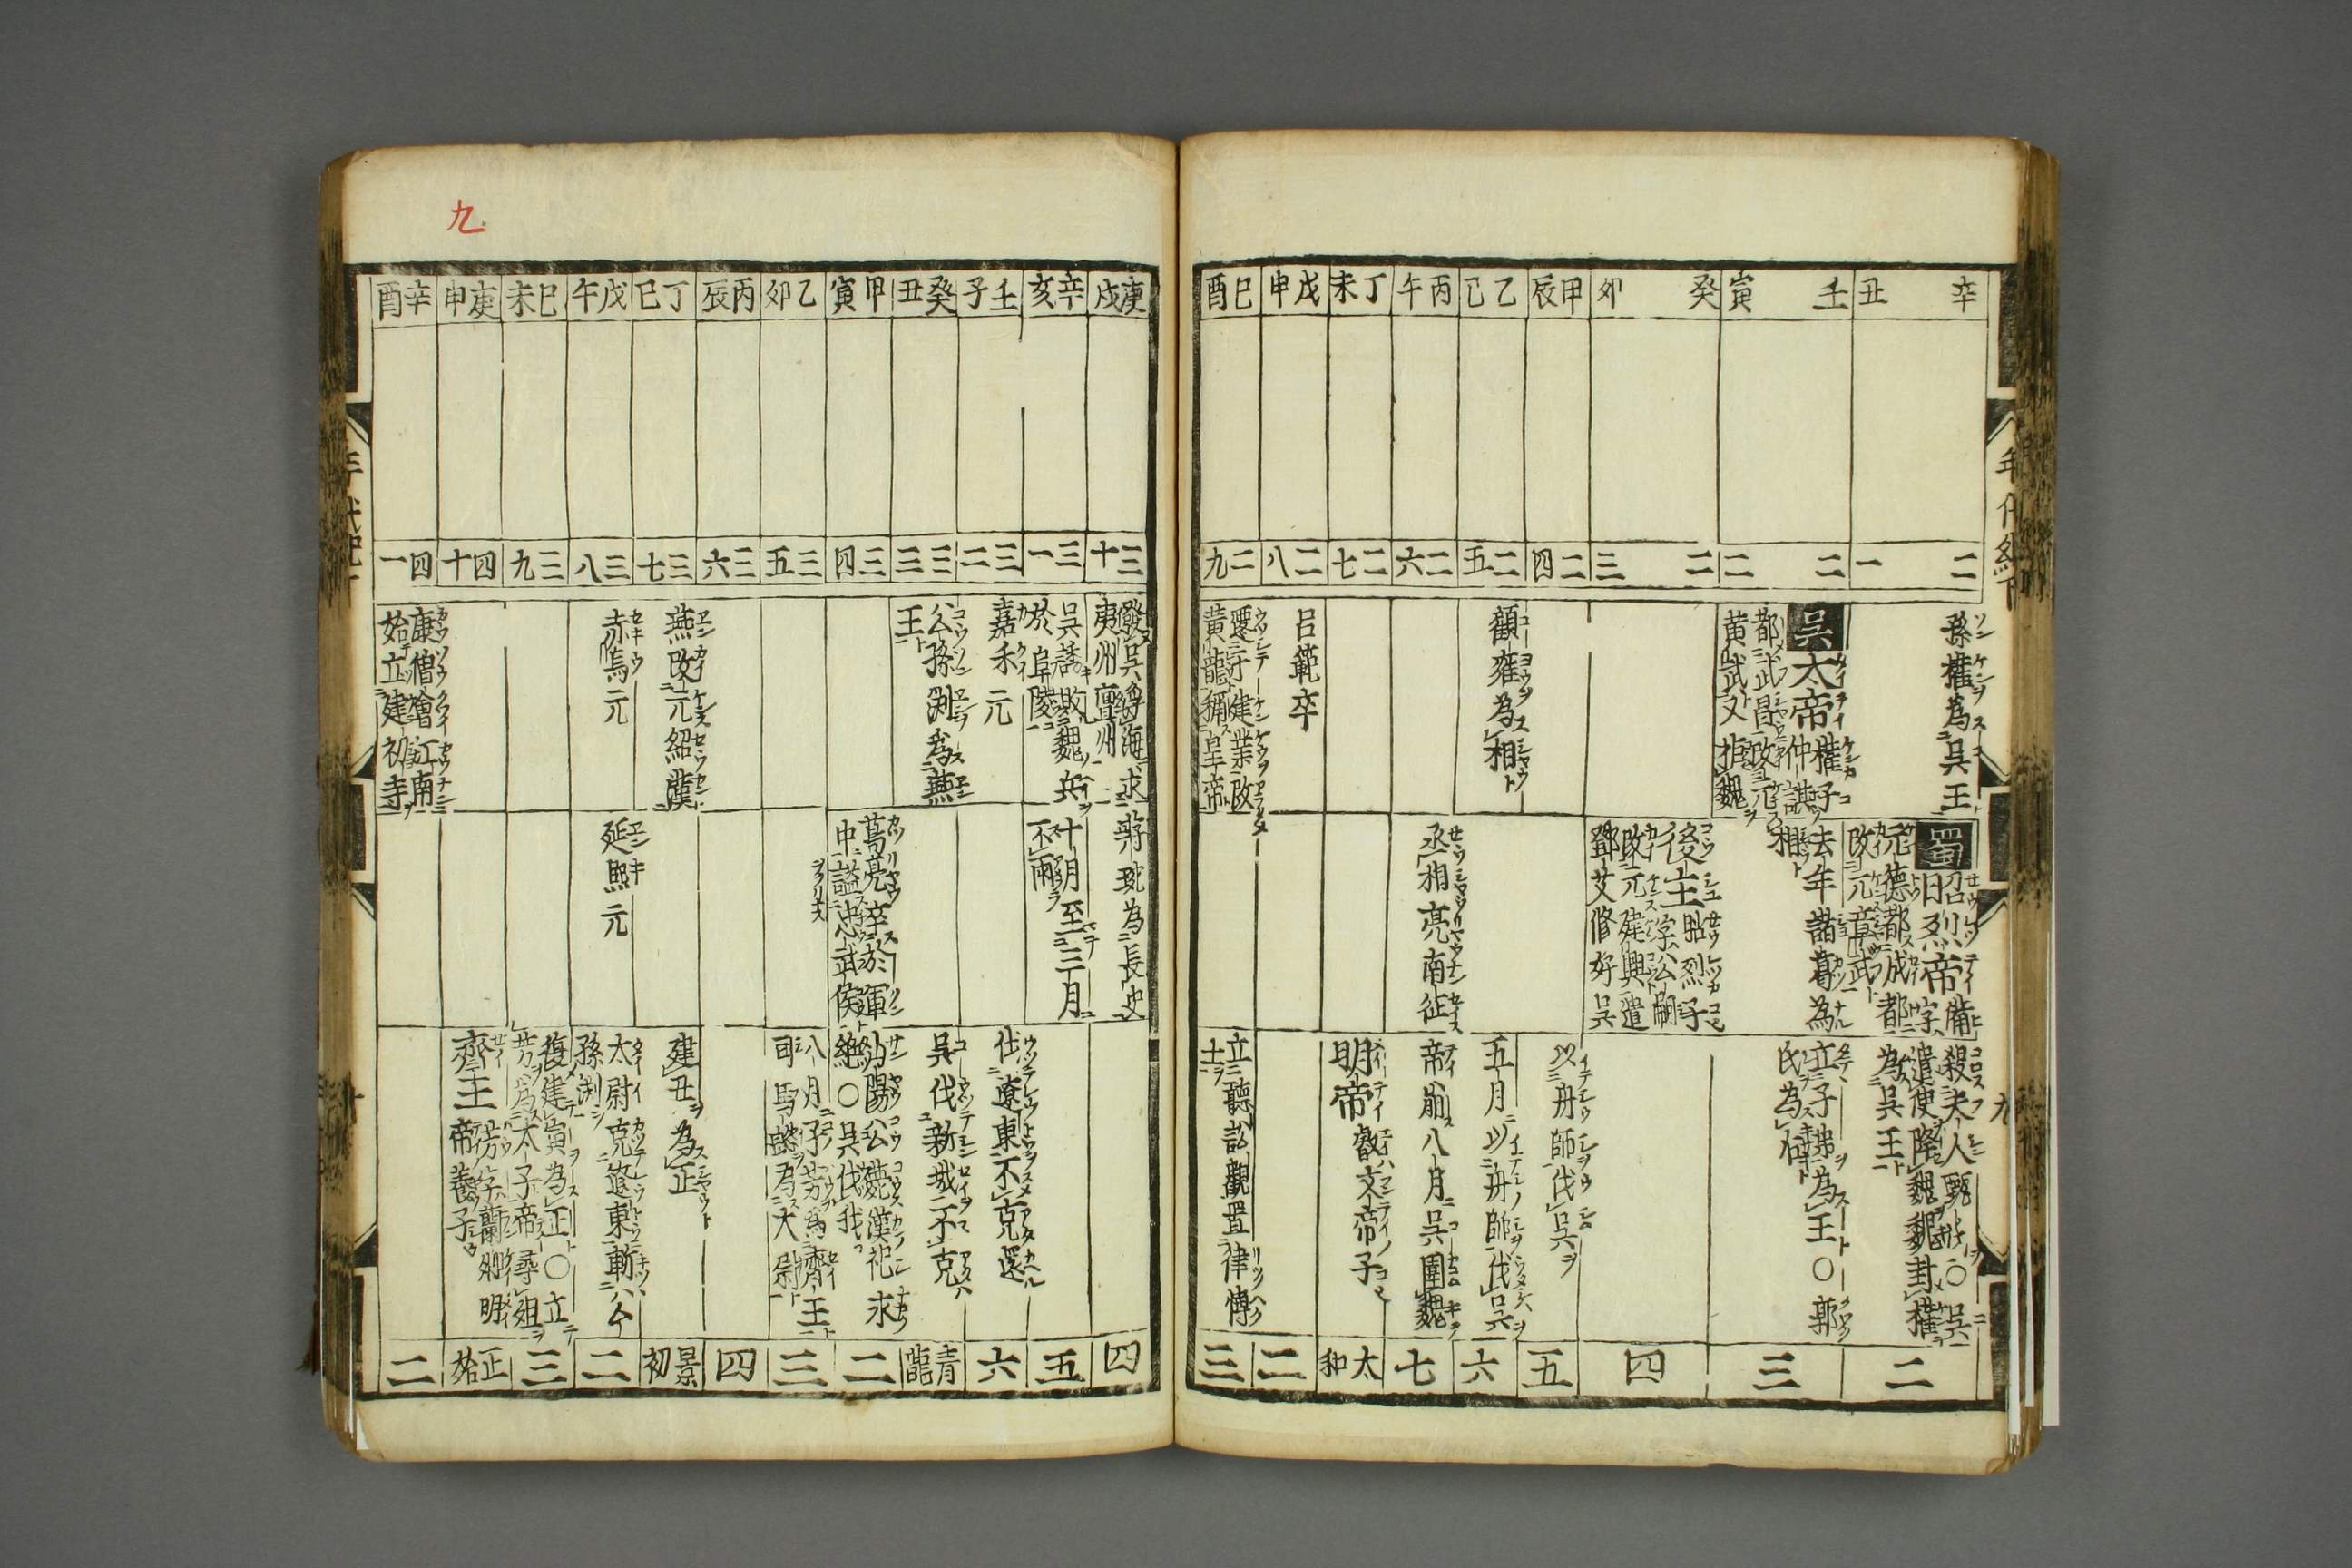 年代紀下
九
辛丑
壬寅
癸卯
甲辰
乙巳
丙午
丁未
戊申
己酉
二一
二二
二三
二四
二五
二六
二七
二八
二九
孫權為吳王
吳太帝權字仲謀
都武昌改元
黃武又拒魏
顧雍為相
呂範卒
遷都建業改
黃龍稱皇帝
蜀昭烈帝備字
玄德都成都
改元章武
去年諸葛為
相
後主昭烈子
字公嗣
改元建興遣
鄧芝修好吳
丞相亮南征
殺夫人甄氏○吳
遣使降魏魏封權
為吳王
立子為王○郭
氏為后
以舟師伐吳
五月以舟師伐吳
帝崩八月吳圍魏
明帝叡文帝子
立聽訟觀置律博
士
二
三
四
五
六
七
太和
二
三
九
庚戌
辛亥
壬子
癸丑
甲寅
乙卯
丙辰
丁巳
戊午
己未
庚申
辛酉
三十
三一
三二
三三
三四
三五
三六
三七
三八
三九
四十
四一
發吳浮海求
夷州亶州
吳誘敗魏兵
於阜陵
嘉禾元
公孫淵為燕
王
燕改元紹漢
赤烏元
康僧會江南
始立建初寺
蔣琬為長史
十月至三月
不雨
葛亮卒於軍
中謚忠武侯
延熙元
伐遼東不克還
吳伐新城不克
山陽公薨漢祀永
絕○吳伐我
八月子芳為齊王
司馬懿為大尉
建丑為正
太尉克遼東斬公
孫淵
復建寅為正○立
芳為太子帝尋殂
齊王芳字蘭卿明
帝養子
四
五
六
青龍
二
三
四
景初
二
三
正始
二
年代紀下